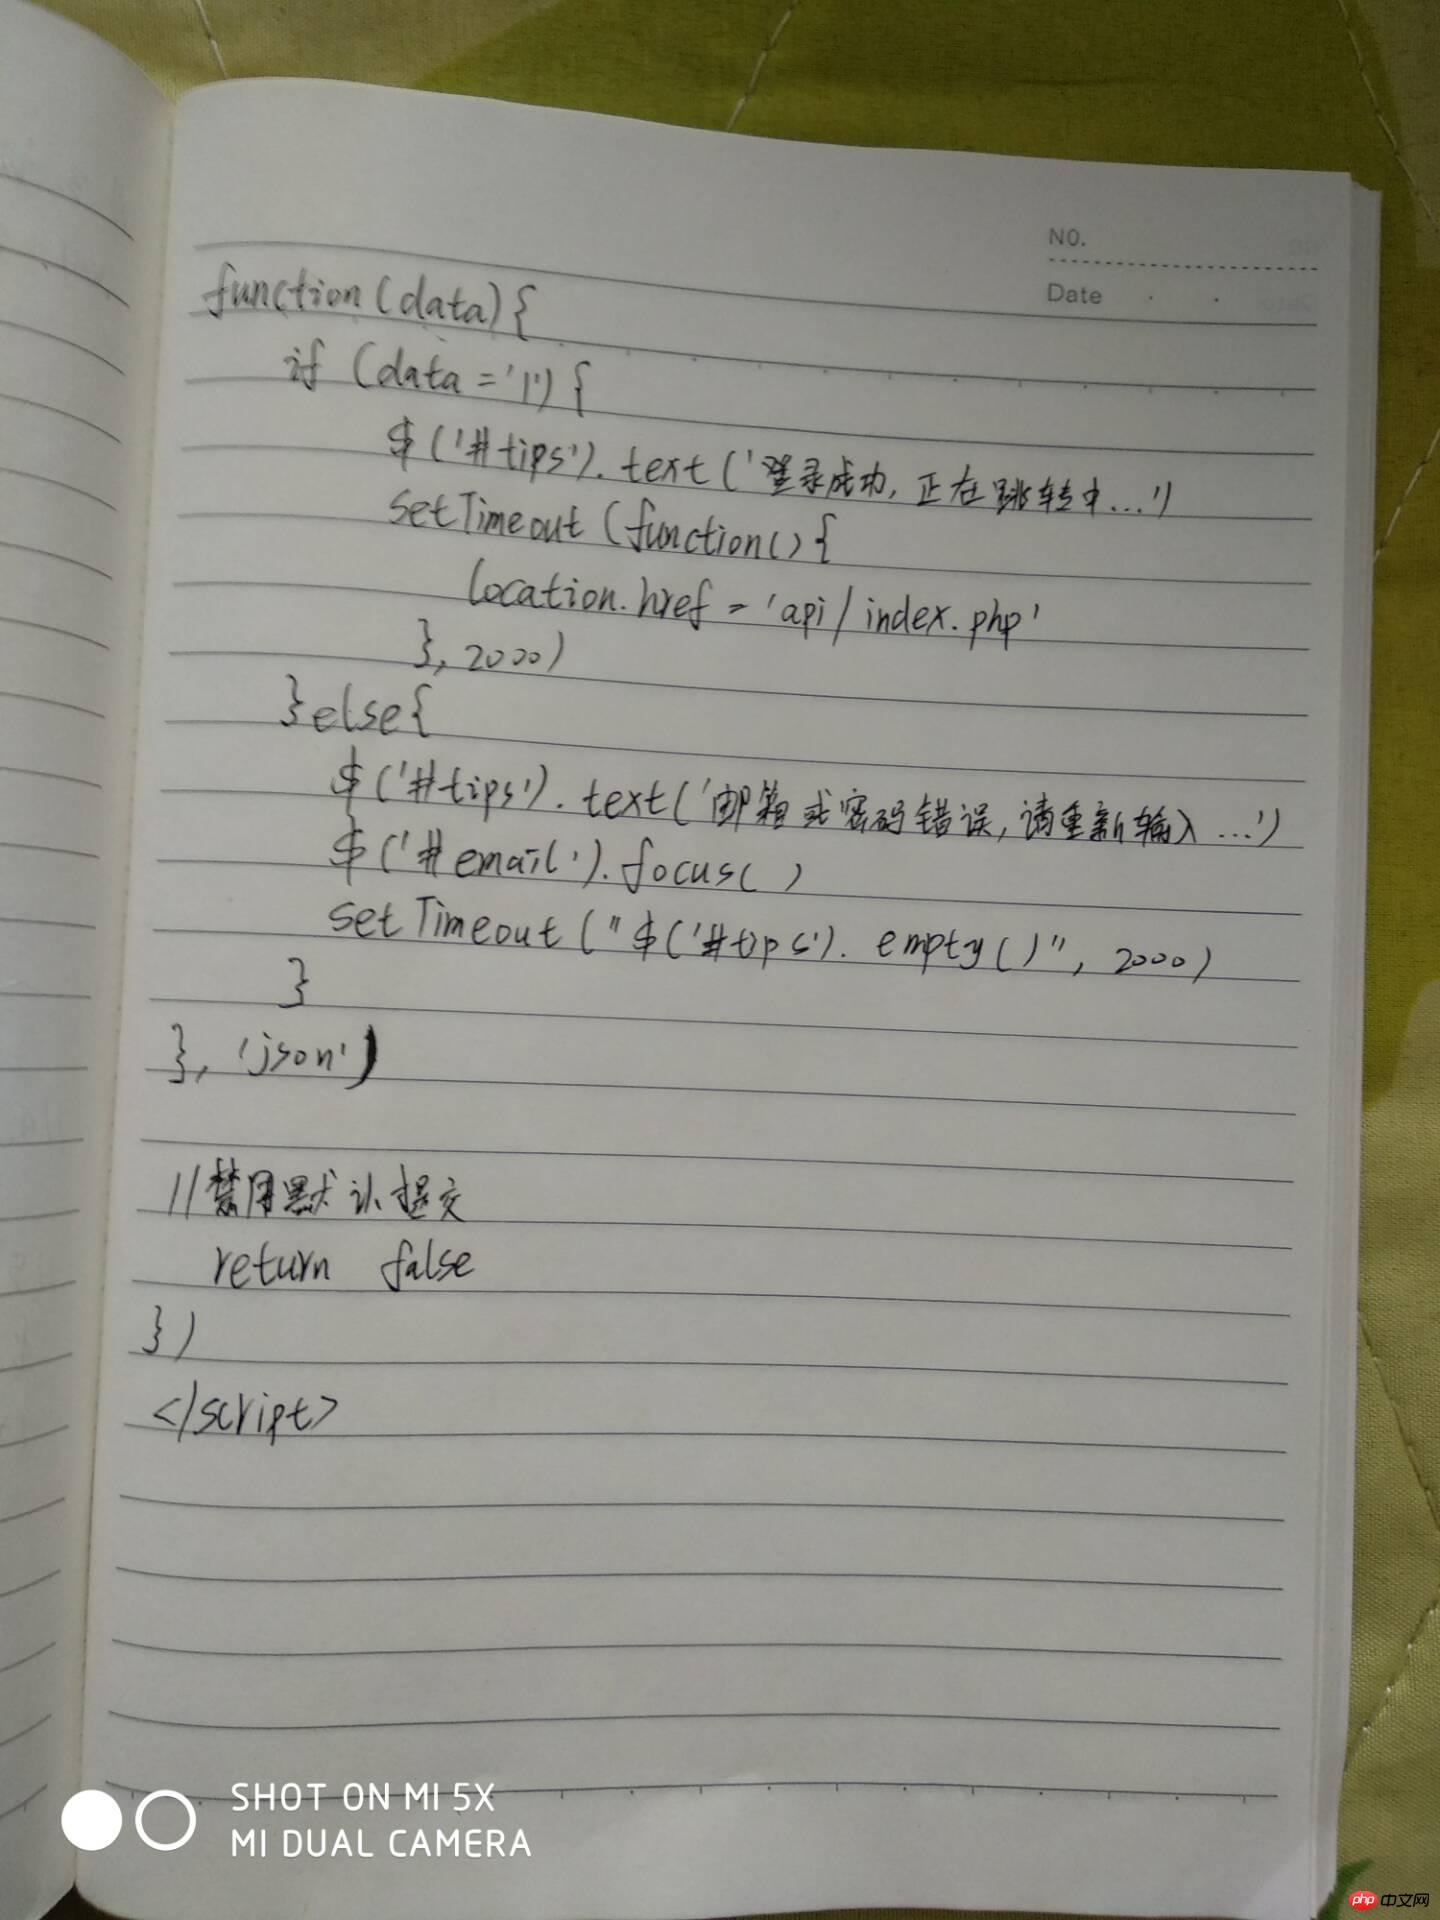 NO.
Date
function(data){
if (data='1'){
$('#tips').text('登录成功,正在跳转中...')
setTimeout(function(){
location.href='api/index.php'
},2000)
}else{
$('#tips').text('邮箱或密码错误,请重新输入...')
$('#email').focus()
setTimeout("$('#tips').empty()",2000)
}
},'json')
//禁用默认提交
return false
})
</script>
SHOT ON MI 5X
MI DUAL CAMERA
php中文网